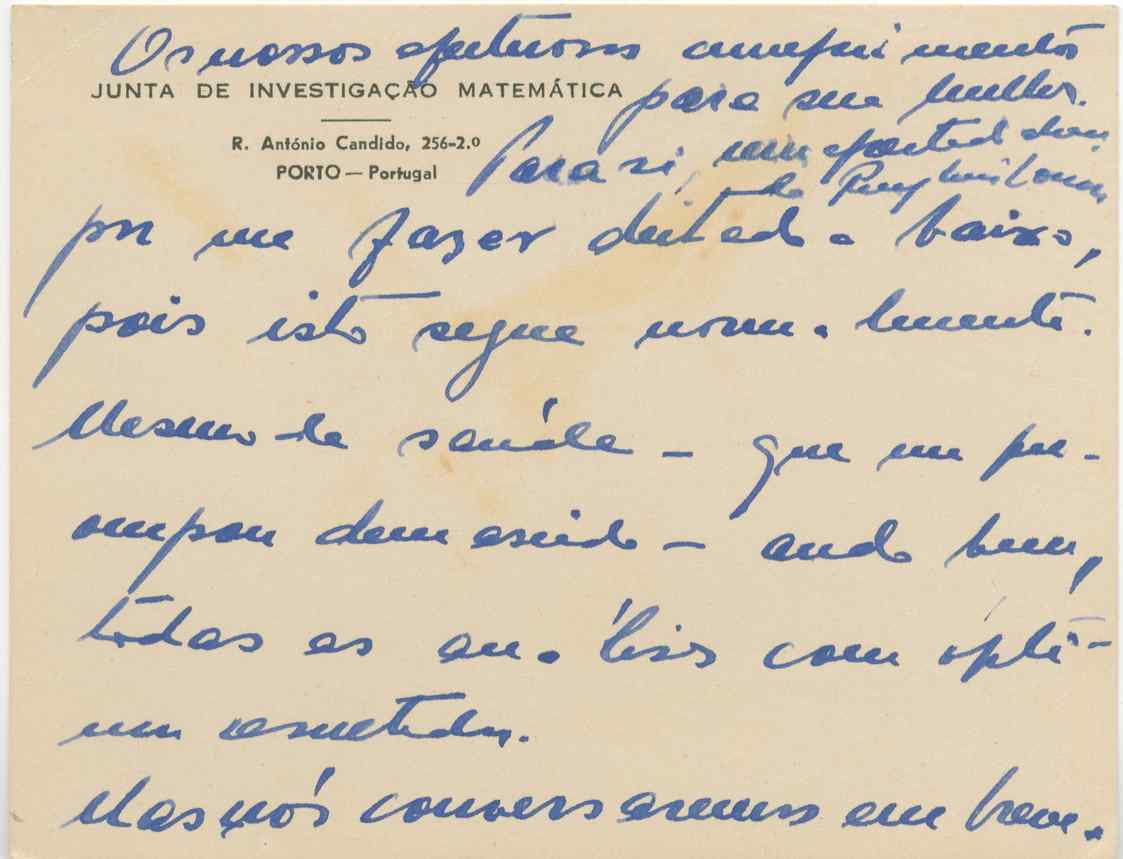 Os nossos afectuosos cumprimentos
JUNTA DE INVESTIGAÇÃO MATEMÁTICA
para sua mulher.
R. António Candido, 256-2.º
PORTO — Portugal
Para si, um apertado abraço
do Ruy Luís Gomes
por me fazer deitado abaixo,
pois isto segue normalmente.
Mesmo de saúde — que me pre-
ocupou demasiado — ando bem,
todas as análises com ópti-
mos resultados.
Mas nós conversaremos em breve.